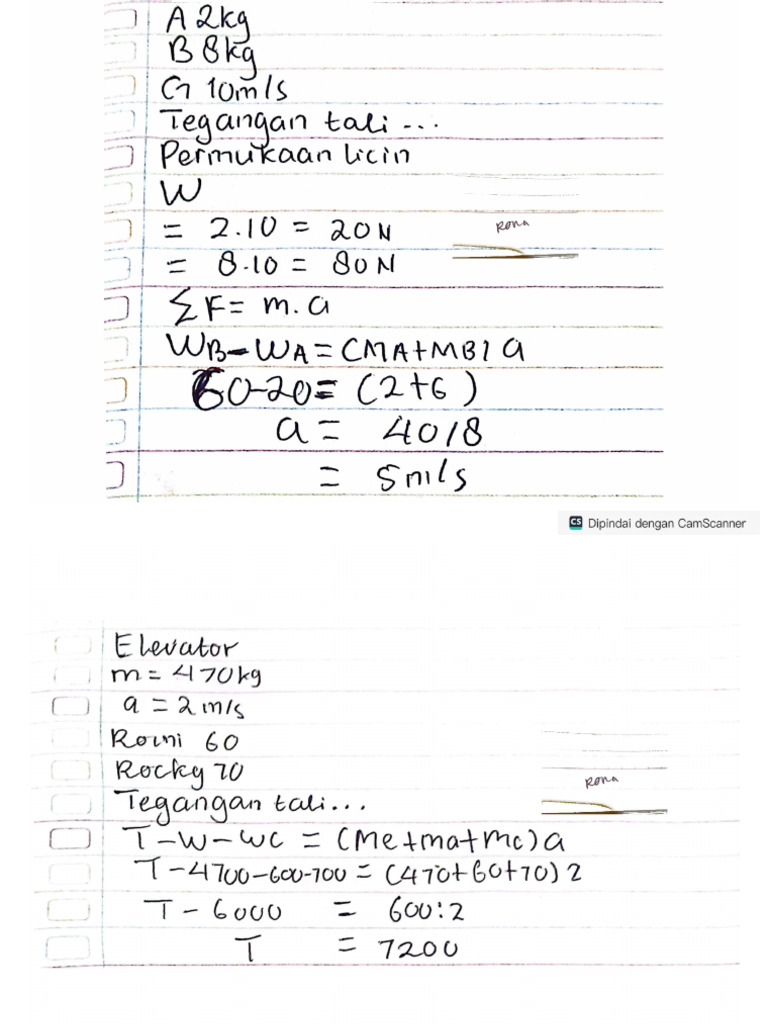 A 2kg
B 8kg
G 10m/s
Tegangan tali ...
Permukaan licin
W
= 2.10 = 20N
= 8.10 = 80N
Rona
ΣF = m.a
WB-WA = (MA+MB) a
60-20 = (2+6)
a = 40/8
= 5m/s
CS Dipindai dengan CamScanner
Elevator
m = 470kg
a = 2m/s
60
Rocky 70
Rona
Tegangan tali ...
T-W-WC = (Me+ma+mc)a
T-4700-600-700 = (470+60+70)2
T-6000 = 600:2
T = 7200